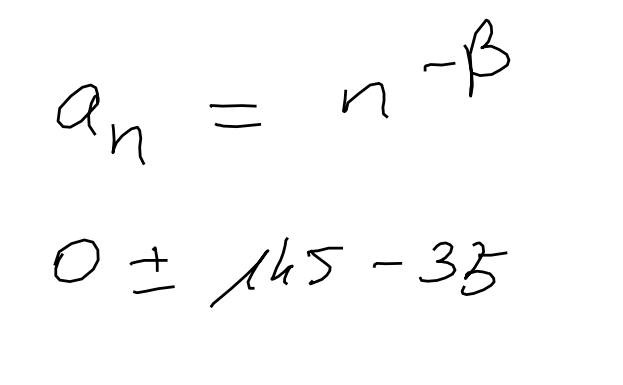 aₙ = n^{-β}
0 ± 145 - 35